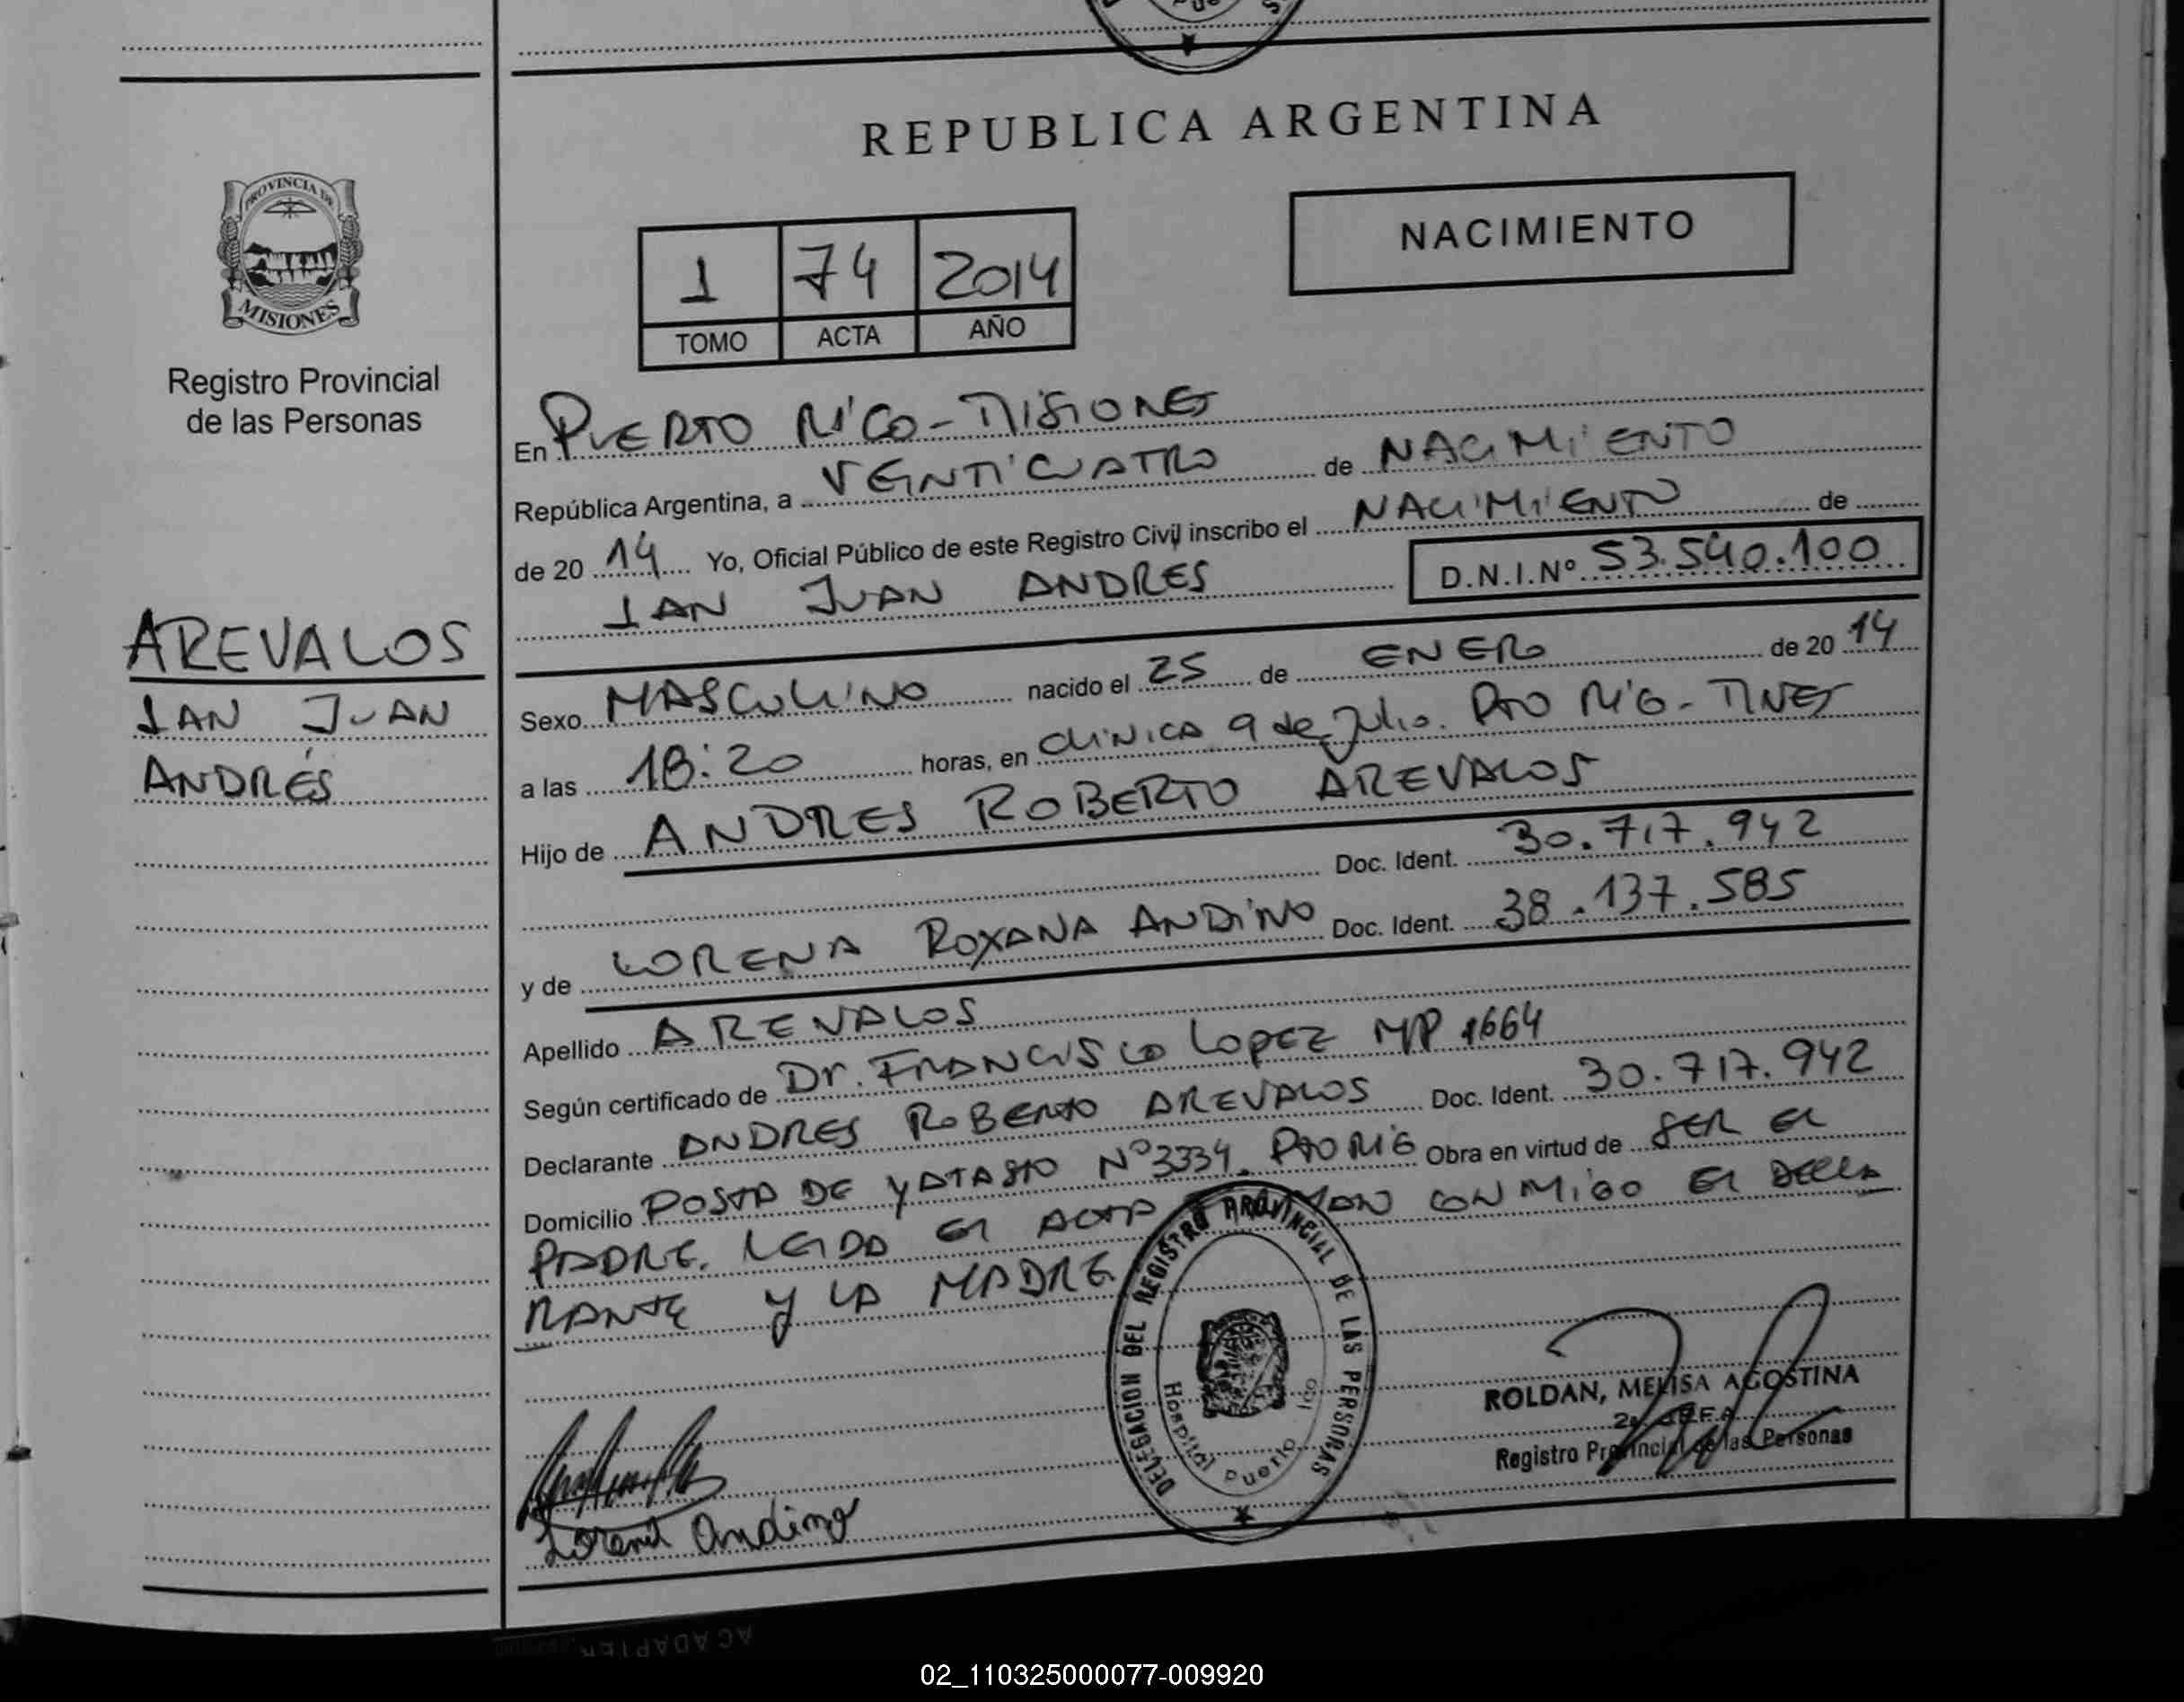 REPUBLICA ARGENTINA
PROVINCIA DE
MISIONES
Registro Provincial
de las Personas
NACIMIENTO
1 74 2014
TOMO ACTA AÑO
En PUERTO RICO - MISIONES
República Argentina, a VEINTICUATRO de NACIMIENTO
de 20 14 Yo, Oficial Público de este Registro Civil inscribo el NACIMIENTO de
IAN JUAN ANDRES D.N.I.Nº 53.540.100
AREVALOS
IAN JUAN
ANDRÉS
Sexo MASCULINO nacido el 25 de ENERO de 20 14
a las 18:20 horas, en CLINICA 9 de Julio. PTO RICO - MNES
Hijo de ANDRES ROBERTO AREVALOS
Doc. Ident. 30.717.942
y de LORENA ROXANA ANDINO Doc. Ident. 38.137.585
Apellido AREVALOS
Según certificado de Dr. FRANCISCO LOPEZ MP 1664
Declarante ANDRES ROBERTO AREVALOS Doc. Ident. 30.717.942
Domicilio POSTA DE YATASTO Nº 3334. PTO RICO Obra en virtud de SER EL
PADRE. LEIDA EL ACTA CONMIGO EL DECLA
RANTE Y LA MADRE
DELEGACION DEL REGISTRO PROVINCIAL DE LAS PERSONAS
Hospital Puerto ico
ROLDAN, MELISA AGOSTINA
2a JEFA
Registro Provincial de las Personas
Lorena Andino
AC ADAPTER
02_110325000077-009920